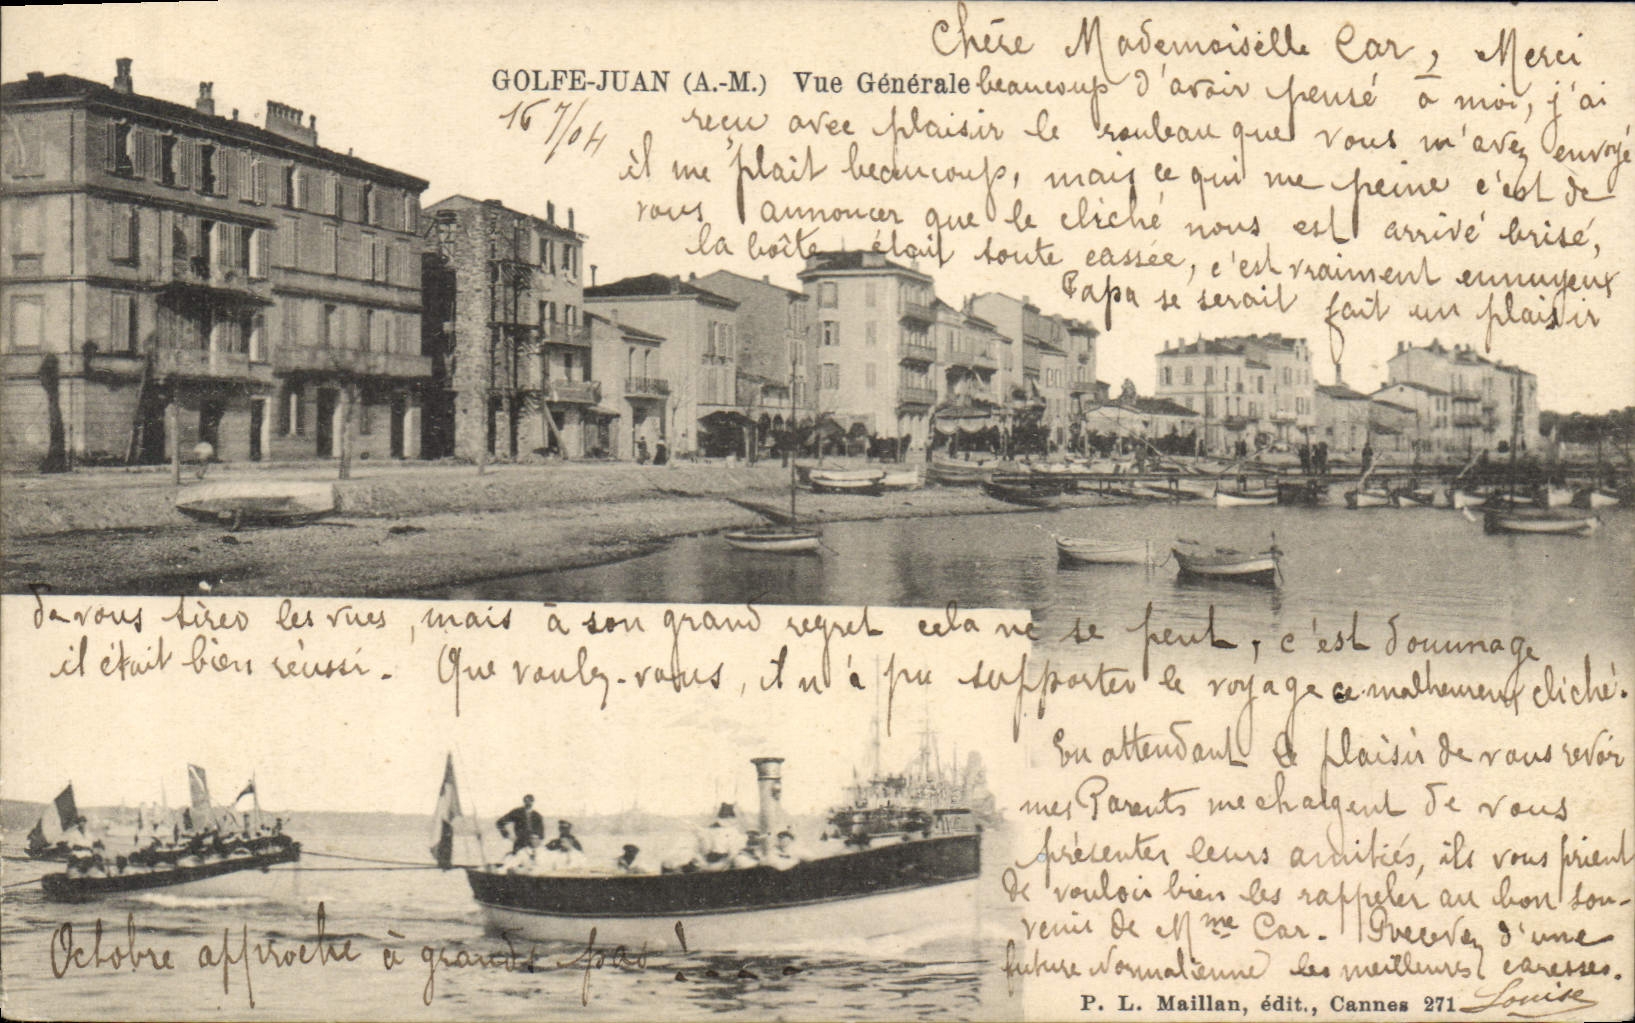 Chère Mademoiselle Car, Merci
GOLFE-JUAN (A.-M.) Vue Générale
beaucoup d'avoir pensé à moi, j'ai
16 7/04
reçu avec plaisir le rouleau que vous m'avez envoyé
il me plait beaucoup, mais ce qui me peine c'est de
vous annoncer que le cliché nous est arrivé brisé,
la boîte était toute cassée, c'est vraiment ennuyeux
Papa se serait fait un plaisir
de vous tirer les vues, mais à son grand regret cela ne se peut, c'est dommage
il était bien réussi. Que voulez-vous, il n'a pu supporter le voyage ce malheureux cliché.
En attendant le plaisir de vous revoir
mes Parents me chargent de vous
présenter leurs amitiés, ils vous prient
de vouloir bien les rappeler au bon sou-
venir de Mme Car. Recevez d'une
future Normalienne les meilleures caresses.
Louise
Octobre approche à grands pas! ....
P. L. Maillan, édit., Cannes 271